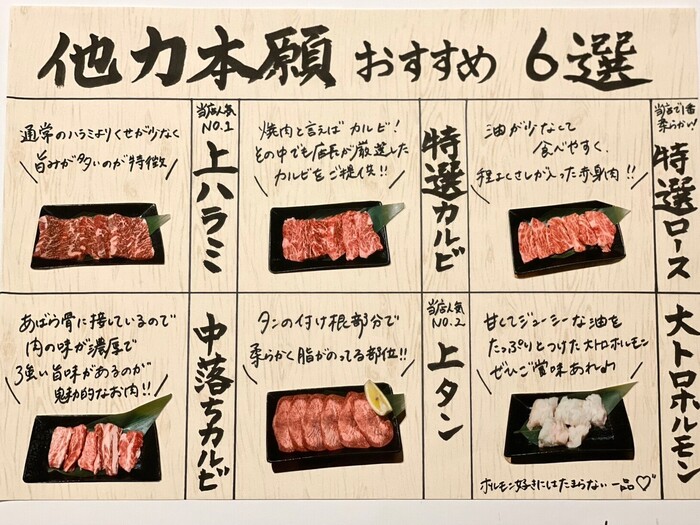 他力本願 おすすめ 6選
当店人気
NO.1
上ハラミ
通常のハラミよりくせが少なく
旨みが多いのが特徴
特選カルビ
焼肉と言えばカルビ!
その中でも店長が厳選した
カルビをご提供!!
当店で1番
柔らかい!
特選ロース
油が少なくて
食べやすく、
程よくさしが入った赤身肉!!
中落ちカルビ
あばら骨に接しているので
肉の味が濃厚で
力強い旨味があるのが
魅力的なお肉!!
当店人気
NO.2
上タン
タンの付け根部分で
柔らかく脂がのってる部位!!
大トロホルモン
甘くてジューシーな油を
たっぷりとつけた大トロホルモン
ぜひご賞味あれ
ホルモン好きにはたまらない一品♡